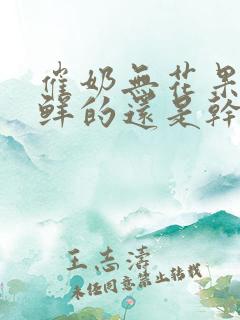 催奶無花果
鮮的還是幹
王志濤
未经同意禁止转载